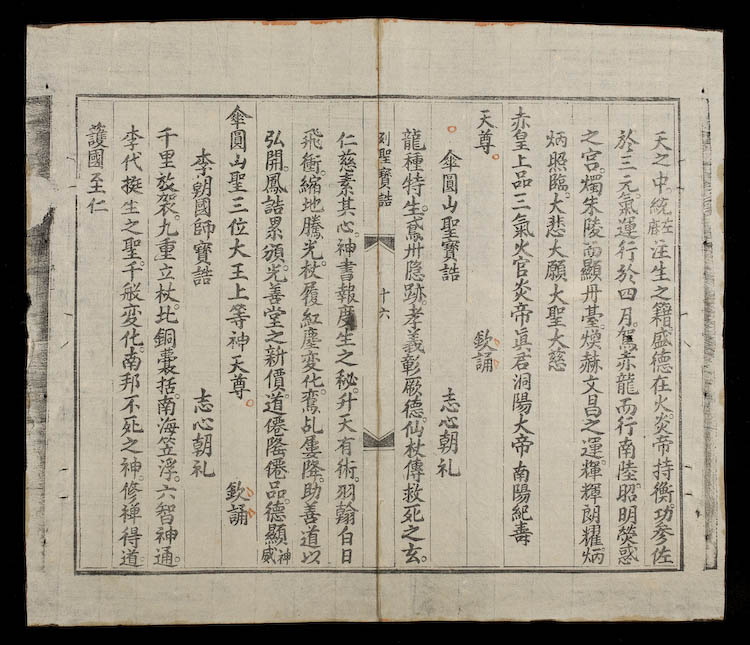 天之中。統左廳注生之籍。盛德在火。炎帝持衡。功參佐
於三元。氣運行於四月。駕赤龍而行南陸。昭明熒惑
之宮。燭朱陵而顯丹臺。煥赫文昌之運。輝輝朗耀。炳
炳照臨。大悲大願大聖大慈
赤皇上品三氣火官炎帝眞君洞陽大帝南陽紀壽
天尊。 欽誦
傘圓山聖寶誥 志心朝礼
龍種特生。鳶卅隐跡。孝義彰厥德。仙杖傳救死之玄。
列聖寶誥 十六
仁慈素其心。神書報度生之秘。升天有術。羽翰白日
飛衝。縮地騰光。杖履紅塵變化。鸞乩屢降。助善道以
弘開。鳳誥累頒。光善堂之新價。道僊隆僊品。德顯神威
傘圓山聖三位大王上等神天尊。 欽誦
李朝國師寶誥 志心朝礼
千里放袈。九重立杖。北銅囊括。南海笠浮。六智神通。
李代挺生之聖。千般変化。南邦不死之神。修禅得道
護國至仁